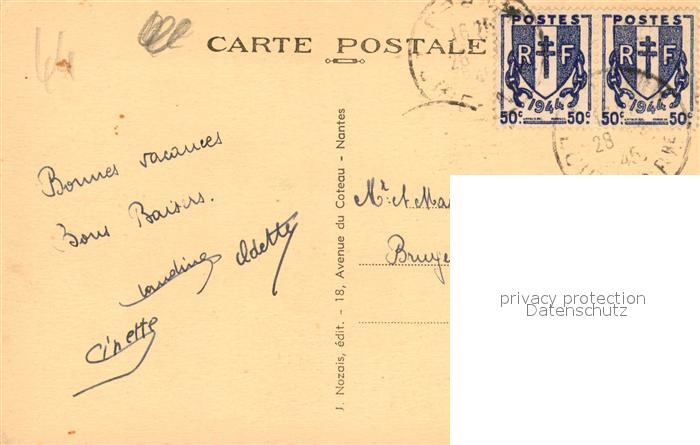 44
CARTE POSTALE
POSTES
RF
1944
50c 50c
POSTES
RF
1944
50c 50c
28
28
45
Bonnes vacances
Bons Baisers.
Odette
Ginette
J. Nozais, édit. - 18, Avenue du Coteau - Nantes
Mr et Ma
Bruye
privacy protection
Datenschutz